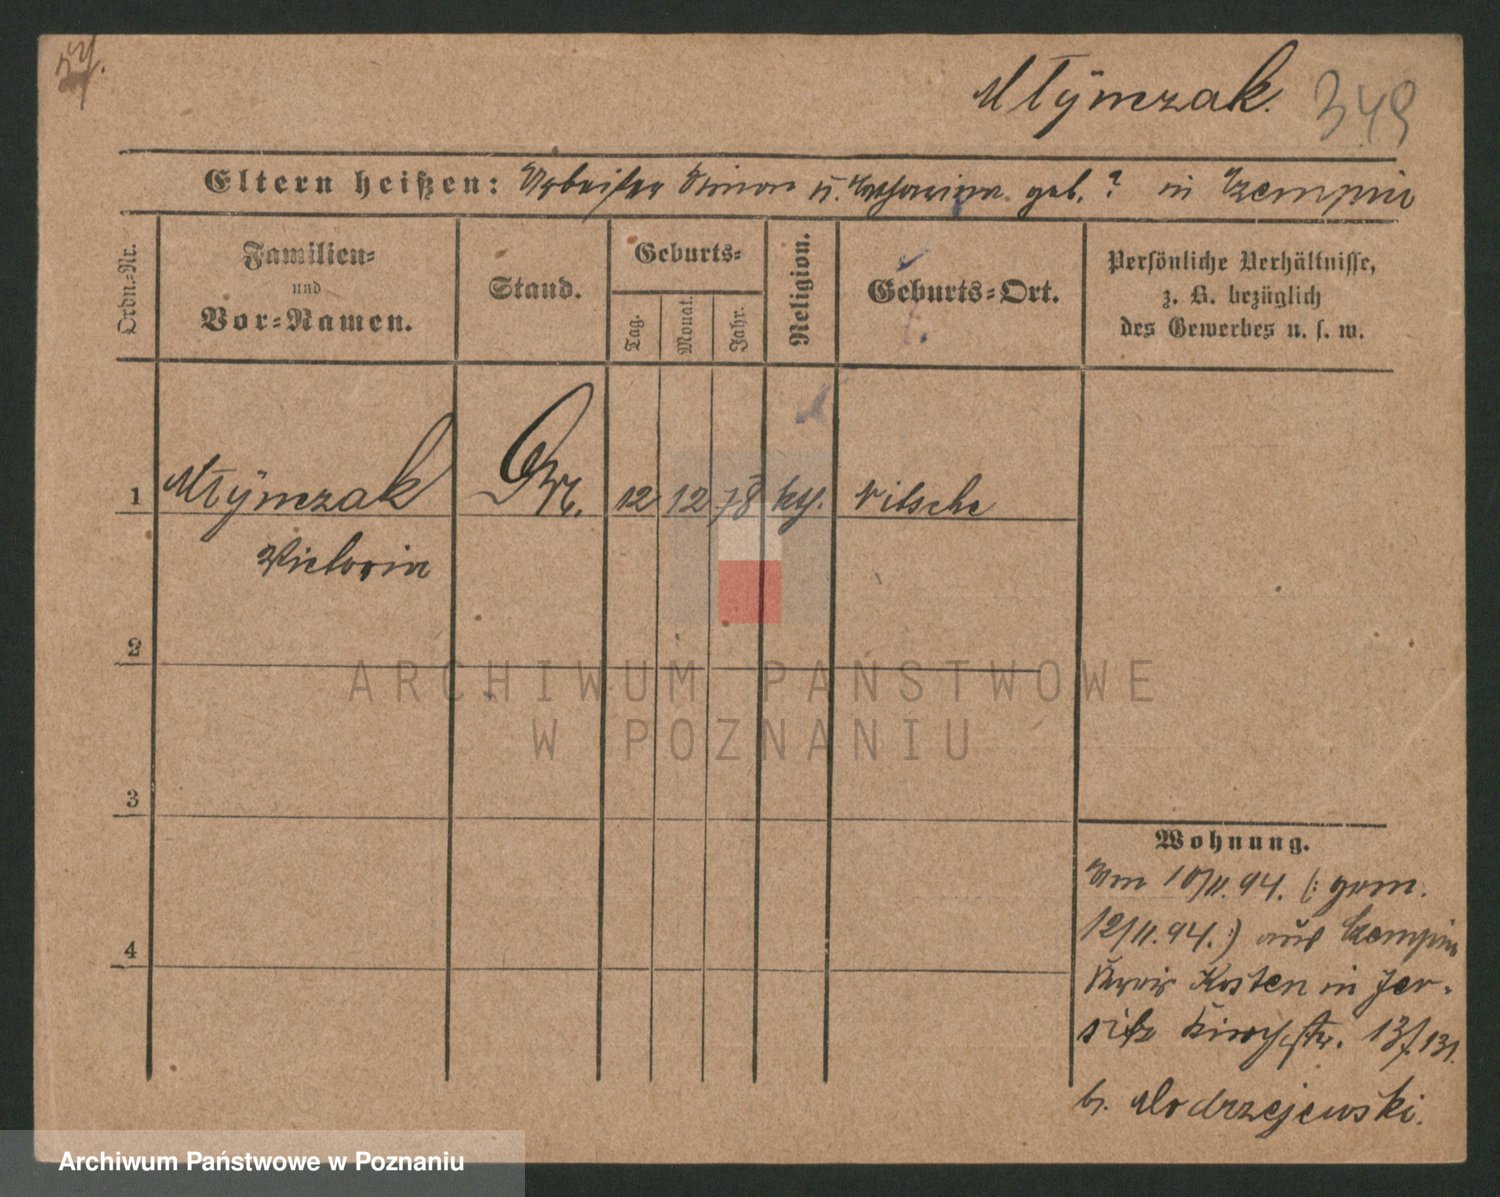 Młÿnczak.
349
Eltern heißen: Arbeiter Simon u. Catharina geb. ? in Czempin
Ordn.-Nr.
Familien-
und
Vor-Namen.
Stand.
Geburts-
Tag.
Monat.
Jahr.
Religion.
Geburts-Ort.
Persönliche Verhältnisse,
z. B. bezüglich
des Gewerbes u. s. w.
1 Młÿnczak 12 12 78 kth.
Victoria
2
3
4
Wohnung.
Am 10/11.94. (: gem.
12/11.94. :) aus Czempin
Kreis Kosten in Jer-
sitz Kirchstr.
b. Modrzejewski.
ARCHIWUM PAŃSTWOWE
W POZNANIU
Archiwum Państwowe w Poznaniu